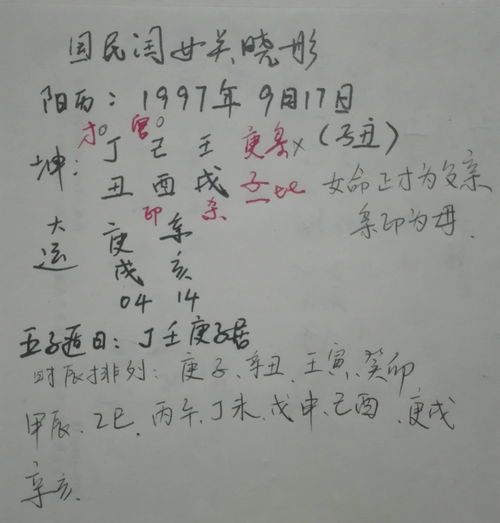 国民闺女关晓彤
阳历：1997年9月17日
才 官
坤：丁 己 壬 庚枭×（子丑）
丑 酉 戌 子 比 女命正才为父亲
印 杀 枭印为母.
大运 庚 辛
戌 亥
04 14
五子遁日：丁壬庚子居
时辰排列：庚子、辛丑、壬寅、癸卯
甲辰、乙巳、丙午、丁未、戊申、己酉、庚戌
辛亥.